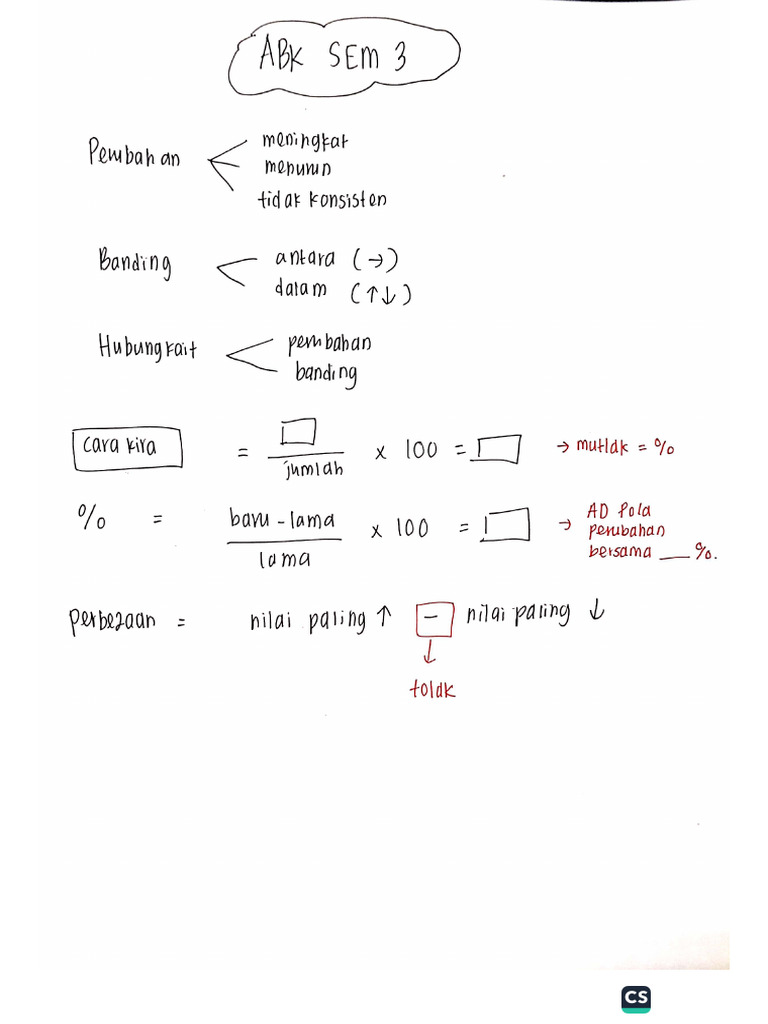 ABK SEM 3
Perubahan
meningkat
menurun
tidak konsisten
Banding
antara (→)
dalam (↑↓)
Hubungkait
perubahan
banding
cara kira = □ / jumlah × 100 = □ → mutlak = %
% = baru - lama / lama × 100 = □ → AD Pola
perubahan
bersama ___ %.
perbezaan = nilai paling ↑ - nilai paling ↓
↓
tolak
CS